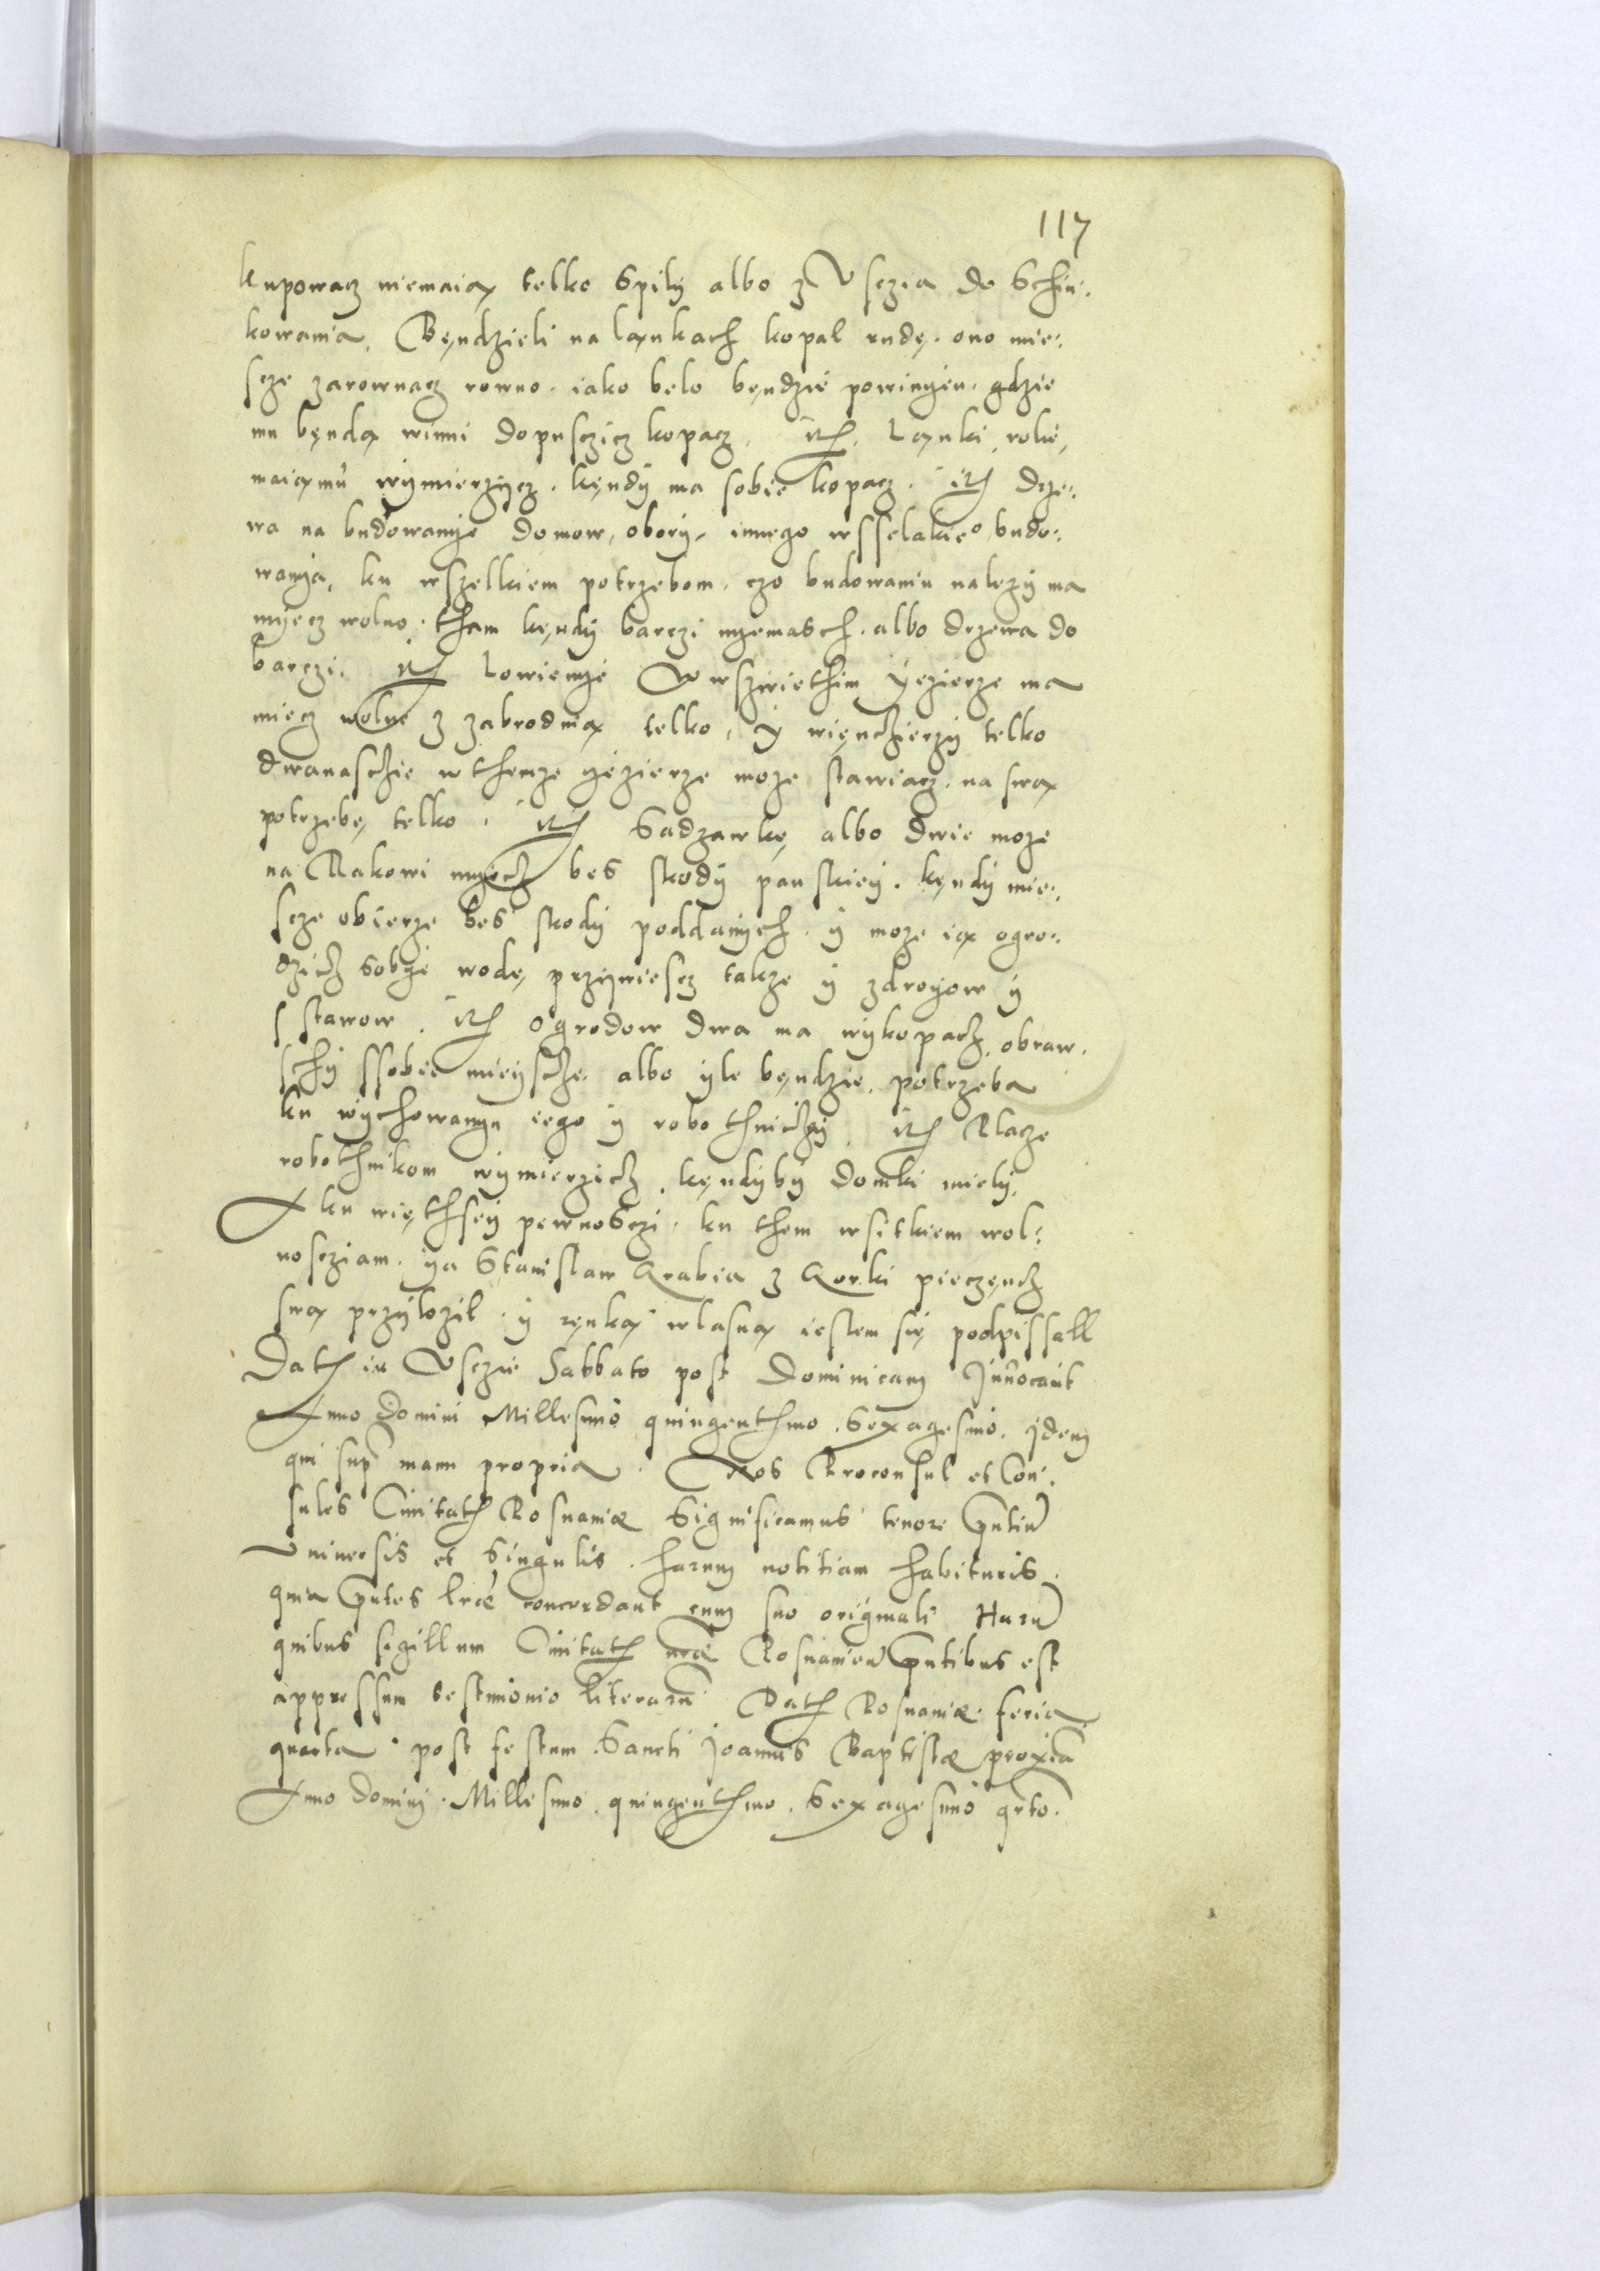 117
kupowacz niemaią telko Spily albo z Usczia do Schin⸗
kowania, Bęndzieli na ląnkach kopal rudę. ono mie⸗
scze zarownacz rowno. iako belo bęndzie powinięn. gdzie
mu będą winni dopusczicz kopacz. Itē. Ląnki, rolie,
maią mu wÿmierzÿcz. kęndÿ ma sobie kopacz. Itē drze⸗
wa na budowanÿe domow, oborÿ, innego wsselakieᵒ budo⸗
wanÿa, ku wszelkiem potrzebom, czo budowaniu nalezÿ ma
mÿecz wolno. tham kęndÿ barczi nÿemasch. albo drzewa do
barczi. Itē Lowienÿe W wszwiethim Yezierze ma
miecz wolne z zabrodnią telko, ÿ więnczierzÿ telko
dwanasczie w themze ÿezierze moze stawiacz. na swą
potrzebę telko. Itē Sadzawkę albo dwie moze
na Rakowi mÿecz bes skodÿ panskieÿ. kęndÿ mie⸗
scze obierze bes skodÿ poddanÿch. ÿ moze ią ogro⸗
dzicz sobÿe wodę przÿwiescz takze ÿ zdroÿow ÿ
sstawow. Itē ogrodow dwa ma wÿkopacz, obraw.
schÿ ssobie mieÿscze. albo ÿle bęndzie, potrzeba
ku wÿchowanÿu iego ÿ robothniczÿ. Itē Placze
robothnikom wÿmierzicz, kęndÿbÿ domki mielÿ.
A ku więthseÿ pewnosczi. ku them wsitkiem wol⸗
nosciam. ÿa Stanislaw Grabia z Gorki pieczęncz
swą przÿlozil. ÿ ręnką wlasną iestem się podpissall
Datē in Usczie Sabbato post Dominicam Inuocauit
Anno Domini Millesimo quingentesimo. Sexagesimo. Idem
qui supr̄ manu propria. Nos Proconsul et Con⸗
sules Ciuitatē Posnaniæ Significamus tenore pn̄tiū
Vniuersis et Singulis. harum notitiam habituris.
quia pn̄tes lr̄æ concordant cum suo originali Harū
quibus sigillum Ciuitatē nr̄æ Posnanien̄ pn̄tibus est
appressum testimonio literarū. Datē Posnaniæ. feria
quarta. post festum Sancti Joannis Baptistæ proxia
Anno Dominj. Millesimo. quingentesimo. Sexagesimo qrto.